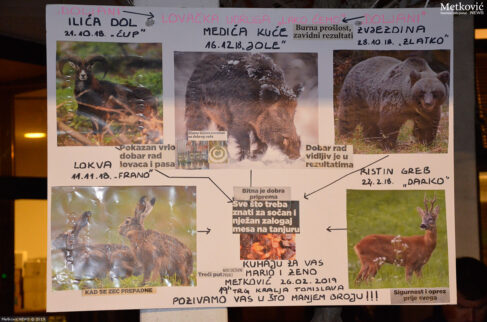 Metković
NEWS
"DOLJANI"
LOVAČKA UDRUGA
"DOLJANI"
ILIĆA DOL
21.10.18. „ĆUP"
MEDIĆA KUĆE
16.12.18. „JOLE"
Burna prošlost,
zavidni rezultati
ZVJEZDINA
28.10.18. „ZLATKO"
Pokazan vrlo
dobar rad
lovaca i pasa
Dobar rad
vidljiv je u
rezultatima
LOKVA
11.11.18. „FRANO"
RISTIN GREB
24.2.18. „DARKO"
Bitna je dobra
priprema
Sve što treba
znati za sočan i
nježan zalogaj
mesa na tanjuru
KAD SE ZEC PREPADNE
Treći put
KUHAJU ZA VAS
MARIO I ZENO
METKOVIĆ 26.02.2019
19h TRG KRALJA TOMISLAVA
POZIVAMO VAS U ŠTO MANJEM BROJU!!!
Sigurnost i oprez
prije svega